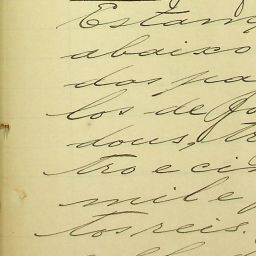 Estam
abaixo
dos pa
los de Jo
dous, tr
tro e ci
mil e
tos reis.